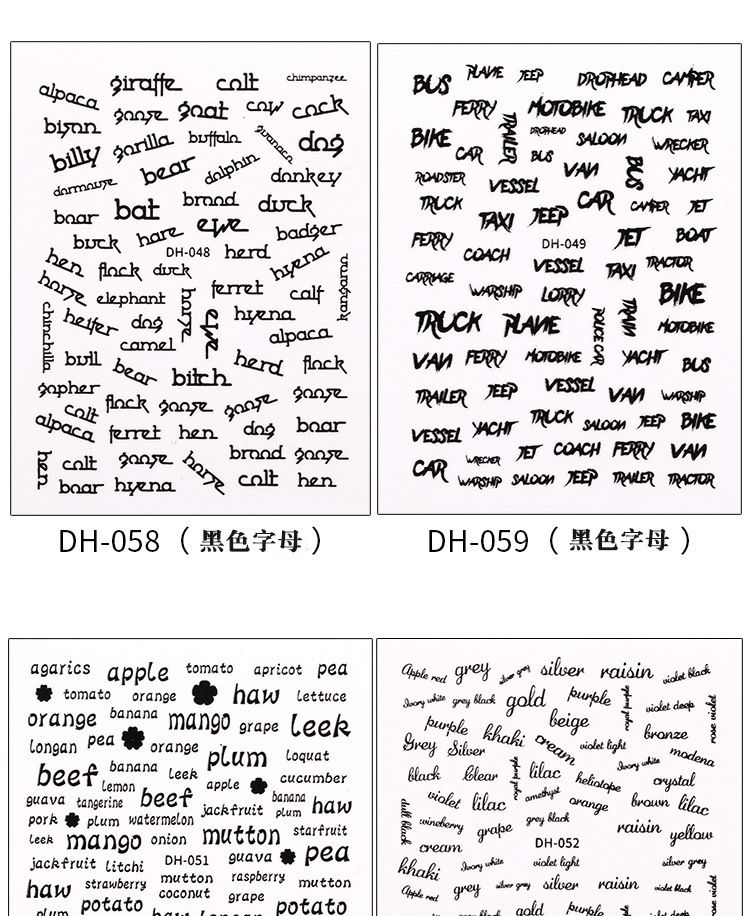 giraffe colt chimpanzee
alpaca goose goat cow cock
bison gorilla buffalo guanaco dog
billy bear dolphin donkey
dormouse brood duck
boar bat ewe badger
buck hare DH-048 herd hyena
hen flock duck
horse elephant horse ferret calf kangaroo
chinchilla heifer dog ewe hyena
camel alpaca
bull bear bitch herd flock
gopher flock goose goose goose
colt
alpaca ferret hen dog boar
hen colt goose horse brood goose
boar hyena colt hen
DH-058（黑色字母）
BUS PLANE JEEP DROPHEAD CAMPER
FERRY TRAILER MOTOBIKE TRUCK TAXI
BIKE DROPHEAD SALOON WRECKER
CAR BUS
ROADSTER VESSEL VAN BUS YACHT
TRUCK TAXI JEEP CAR CAMPER JET
FERRY DH-049 JET BOAT
COACH VESSEL TAXI TRACTOR
CARRIAGE WARSHIP LORRY BIKE
TRUCK PLANE POLICE CAR TRAIN MOTOBIKE
VAN FERRY MOTOBIKE YACHT BUS
TRAILER JEEP VESSEL VAN WARSHIP
VESSEL YACHT TRUCK SALOON JEEP BIKE
WRECKER JET COACH FERRY VAN
CAR WARSHIP SALOON JEEP TRAILER TRACTOR
DH-059（黑色字母）
agarics apple tomato apricot pea
tomato orange haw lettuce
orange banana mango grape leek
longan pea orange
plum loquat
beef banana leek cucumber
lemon apple
guava tangerine beef jackfruit banana plum haw
pork plum watermelon
leek mango onion mutton starfruit
jackfruit litchi DH-051 guava pea
haw strawberry mutton raspberry mutton
coconut grape
plum potato potato
Apple red grey silver grey silver raisin violet black
Ivory white grey black gold purple royal purple violet deep rose violet
purple khaki beige bronze
Grey Silver cream violet light modena
Ivory white
black Clear royal purple lilac heliotope crystal
violet lilac amethyst orange brown lilac
dull black wineberry grape grey black raisin yellow
cream DH-052
khaki Ivory white violet light silver grey
Apple red grey silver grey silver raisin violet black
gold purple rose violet